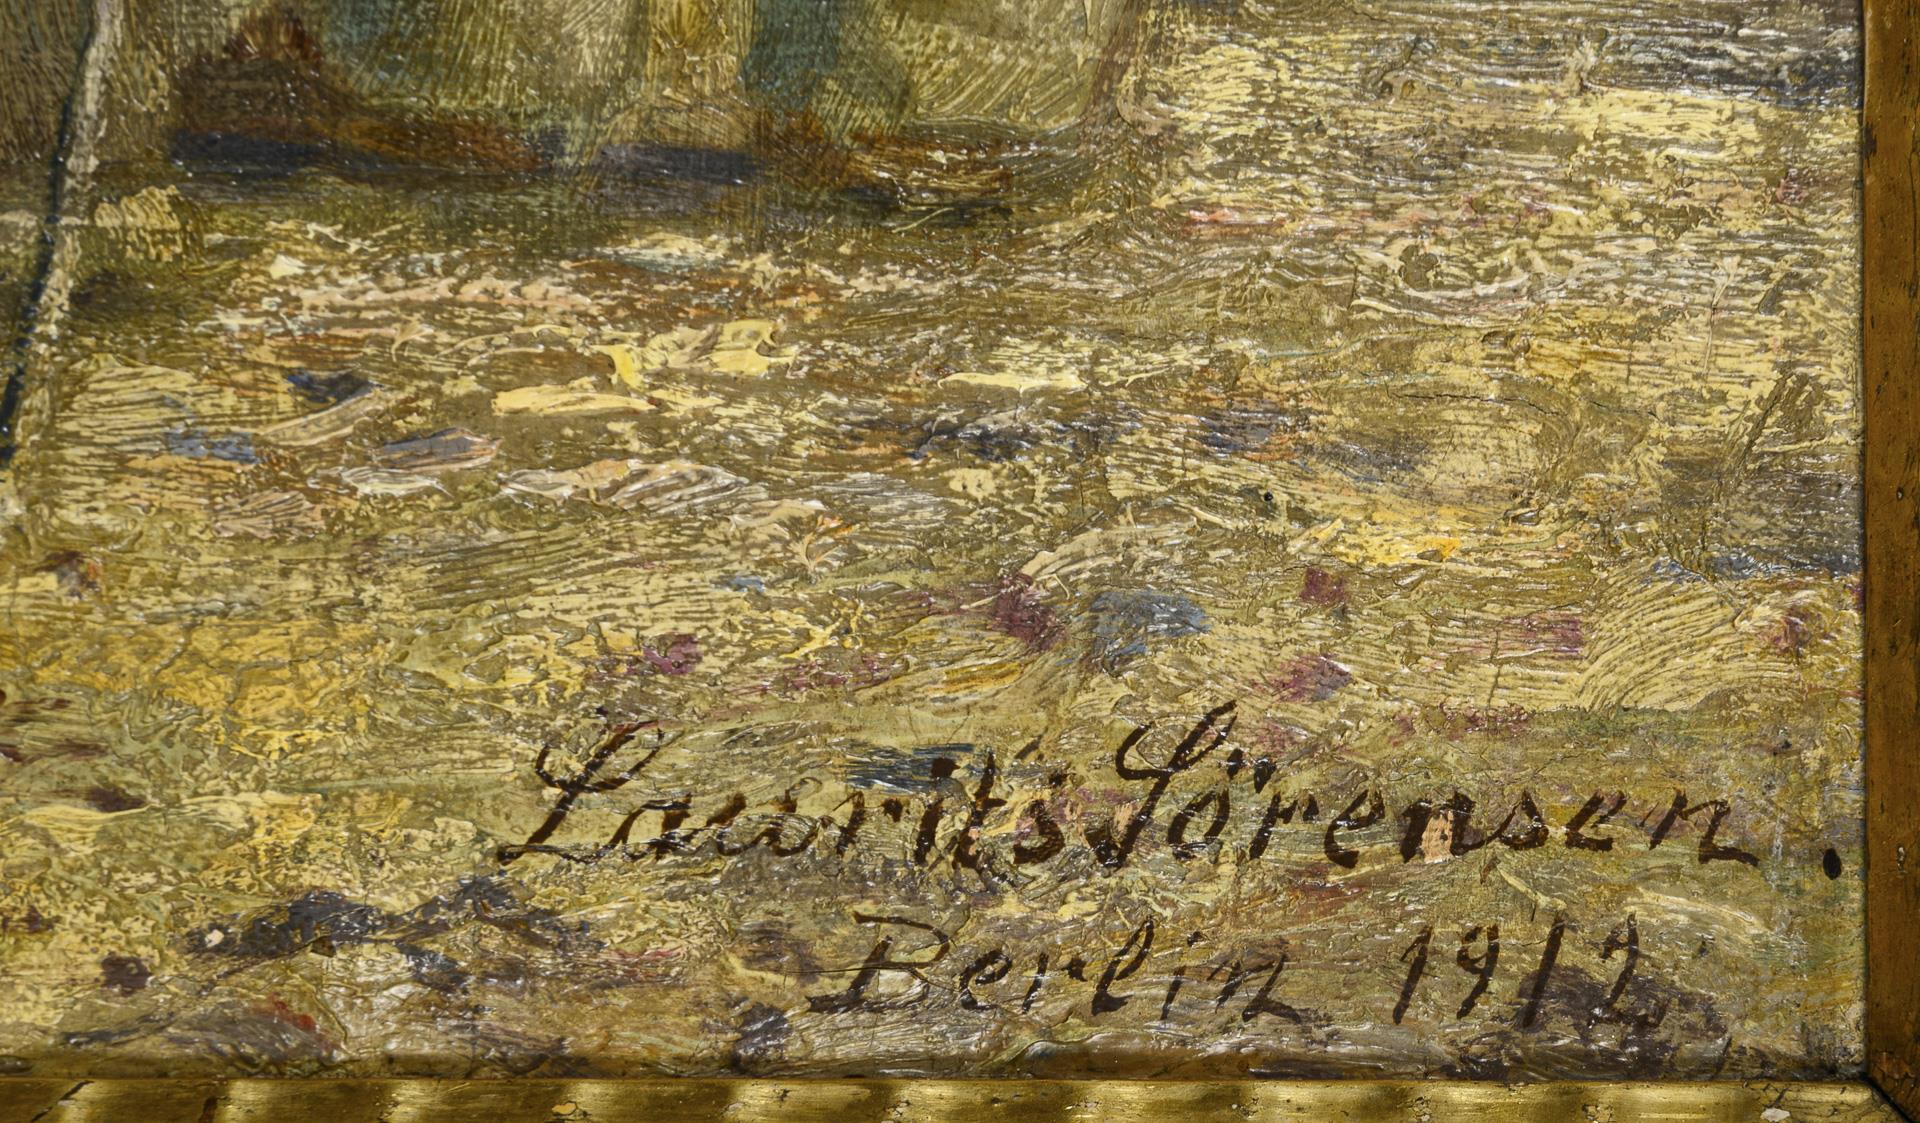 Laurits Sörensen.
Berlin 1912